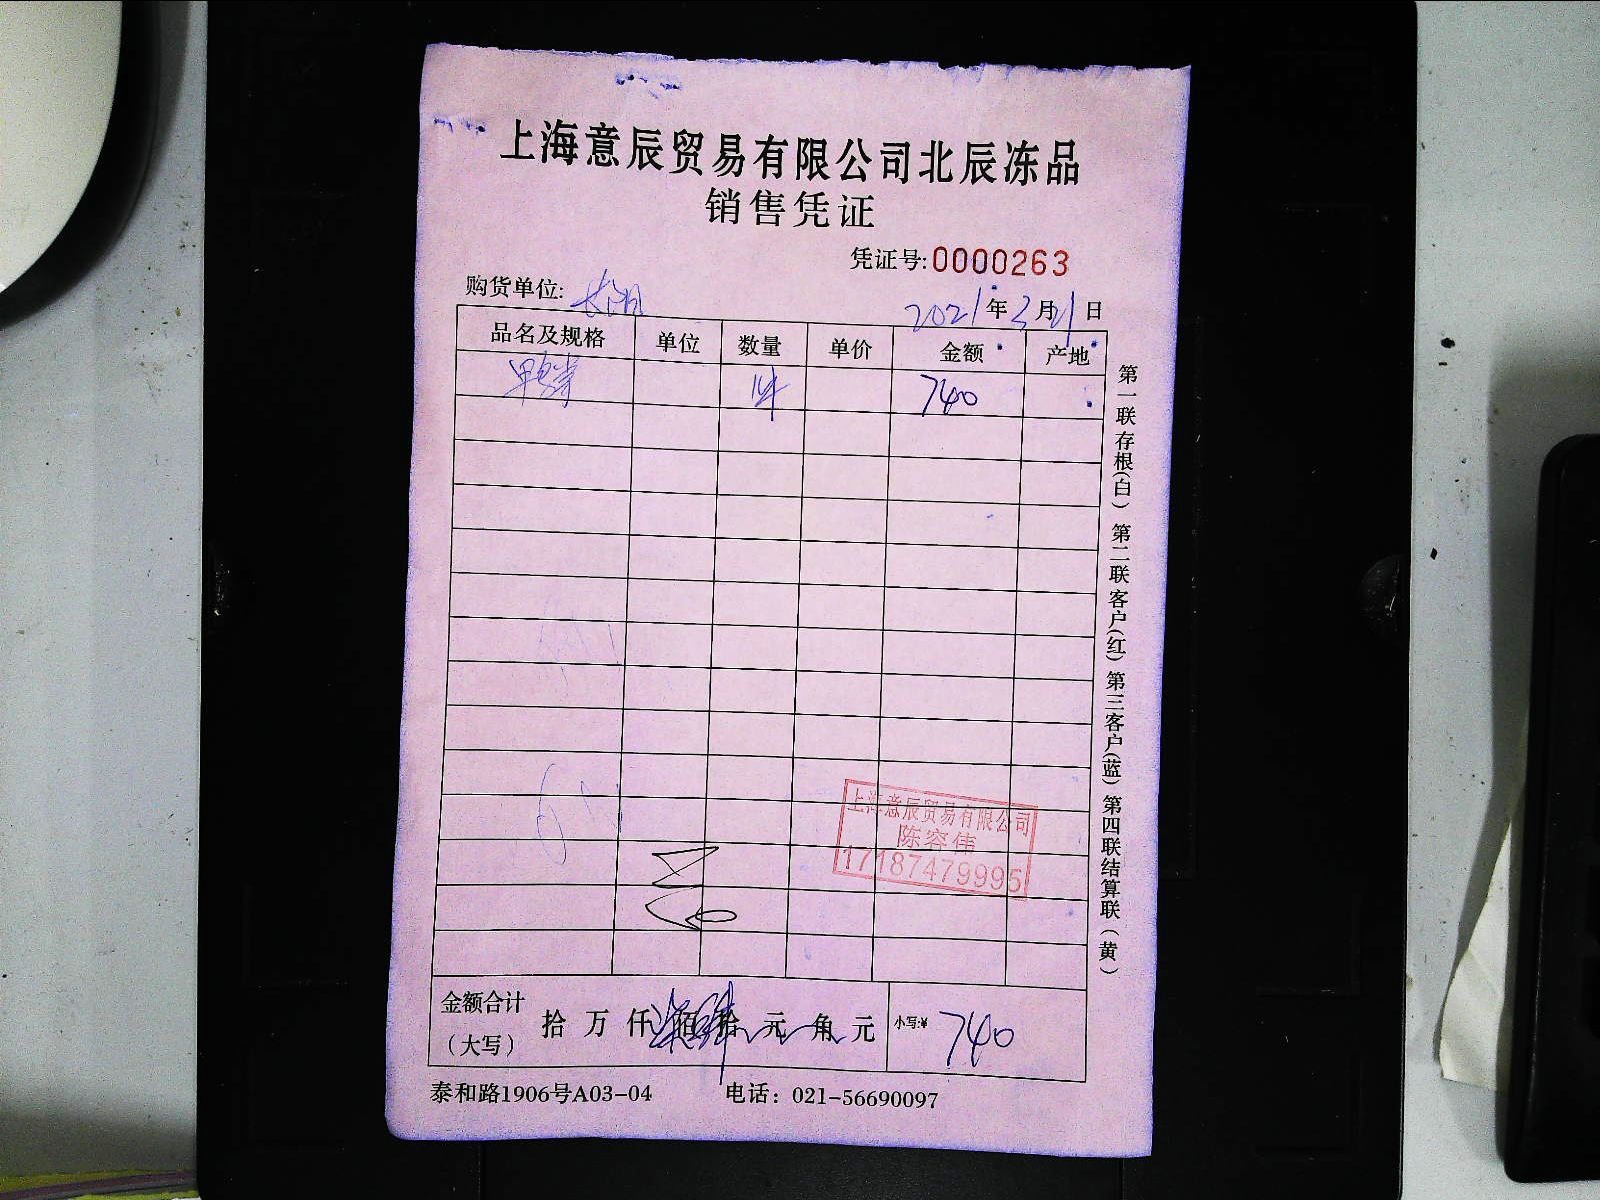 上海意辰贸易有限公司北辰冻品
销售凭证
凭证号:0000263
购货单位:
2021年3月21日
品名及规格 单位 数量 单价 金额 产地
740
第一联存根(白) 第二联客户(红) 第三客户(蓝) 第四联结算联(黄)
上海意辰贸易有限公司
陈容伟
17187479995
金额合计
(大写)
拾 万 仟 柒佰肆拾 元 角 元
小写:¥ 740
泰和路1906号A03-04 电话: 021-56690097